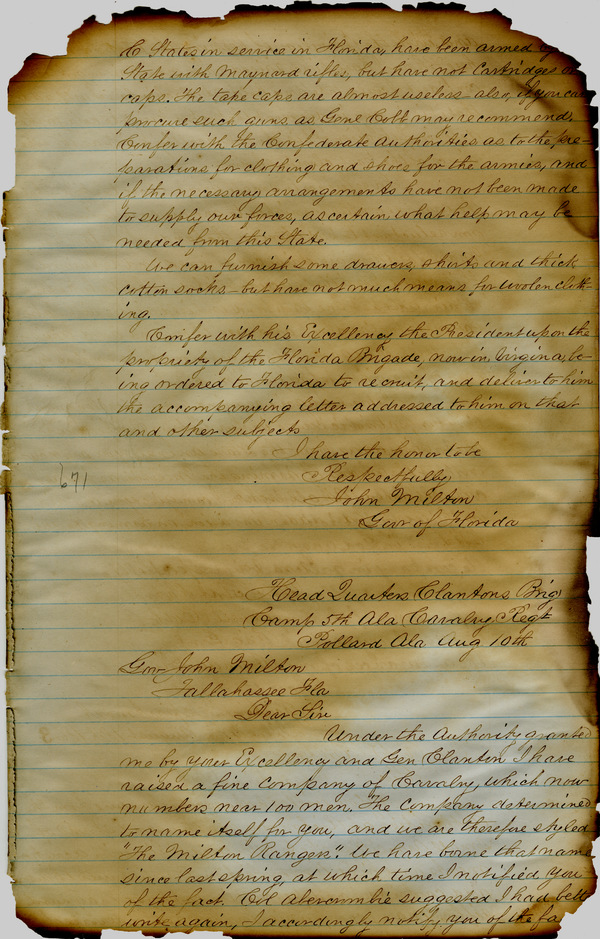 C States in service in Florida, have been armed
State with Maynard rifles, but have not Cartridges or
caps. The tape caps are almost useless also, if you can
procure such guns as Genl Cobb may recommend.
Confer with the Confederate Authorities as to the pre-
parations for clothing and shoes for the armies, and
if the necessary arrangements have not been made
to supply our forces, ascertain what help may be
needed from this State.
We can furnish some drawers, shirts and thick
cotton socks – but have not much means for woolen cloth-
ing.
Confer with his Excellency the President upon the
propriety of the Florida Brigade, now in Virginia, be-
ing ordered to Florida to recruit, and deliver to him
the accompanying letter addressed to him on that
and other subjects
I have the honor to be
Respectfully
John Milton
Govr of Florida
671
Head Quarters Clantons Brig
Camp 5th Ala Cavalry Regt
Pollard Ala Aug 10th
Gov John Milton
Tallahassee Fla
Dear Sir
Under the Authority granted
me by your Excellency and Gen Clanton I have
raised a fine company of Cavalry, which now
numbers near 100 men. The Company determined
to name itself for you, and we are therefore styled
"The Milton Rangers". We have borne that name
since last spring, at which time I notified you
of the fact. Col Abercrombie suggested I had bett
write again, I accordingly notify you of the fa